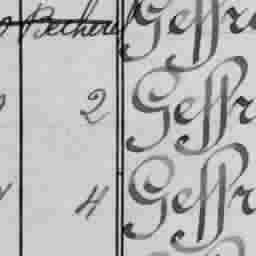 Becherel Geffr
2 Geffr
4 Geffr